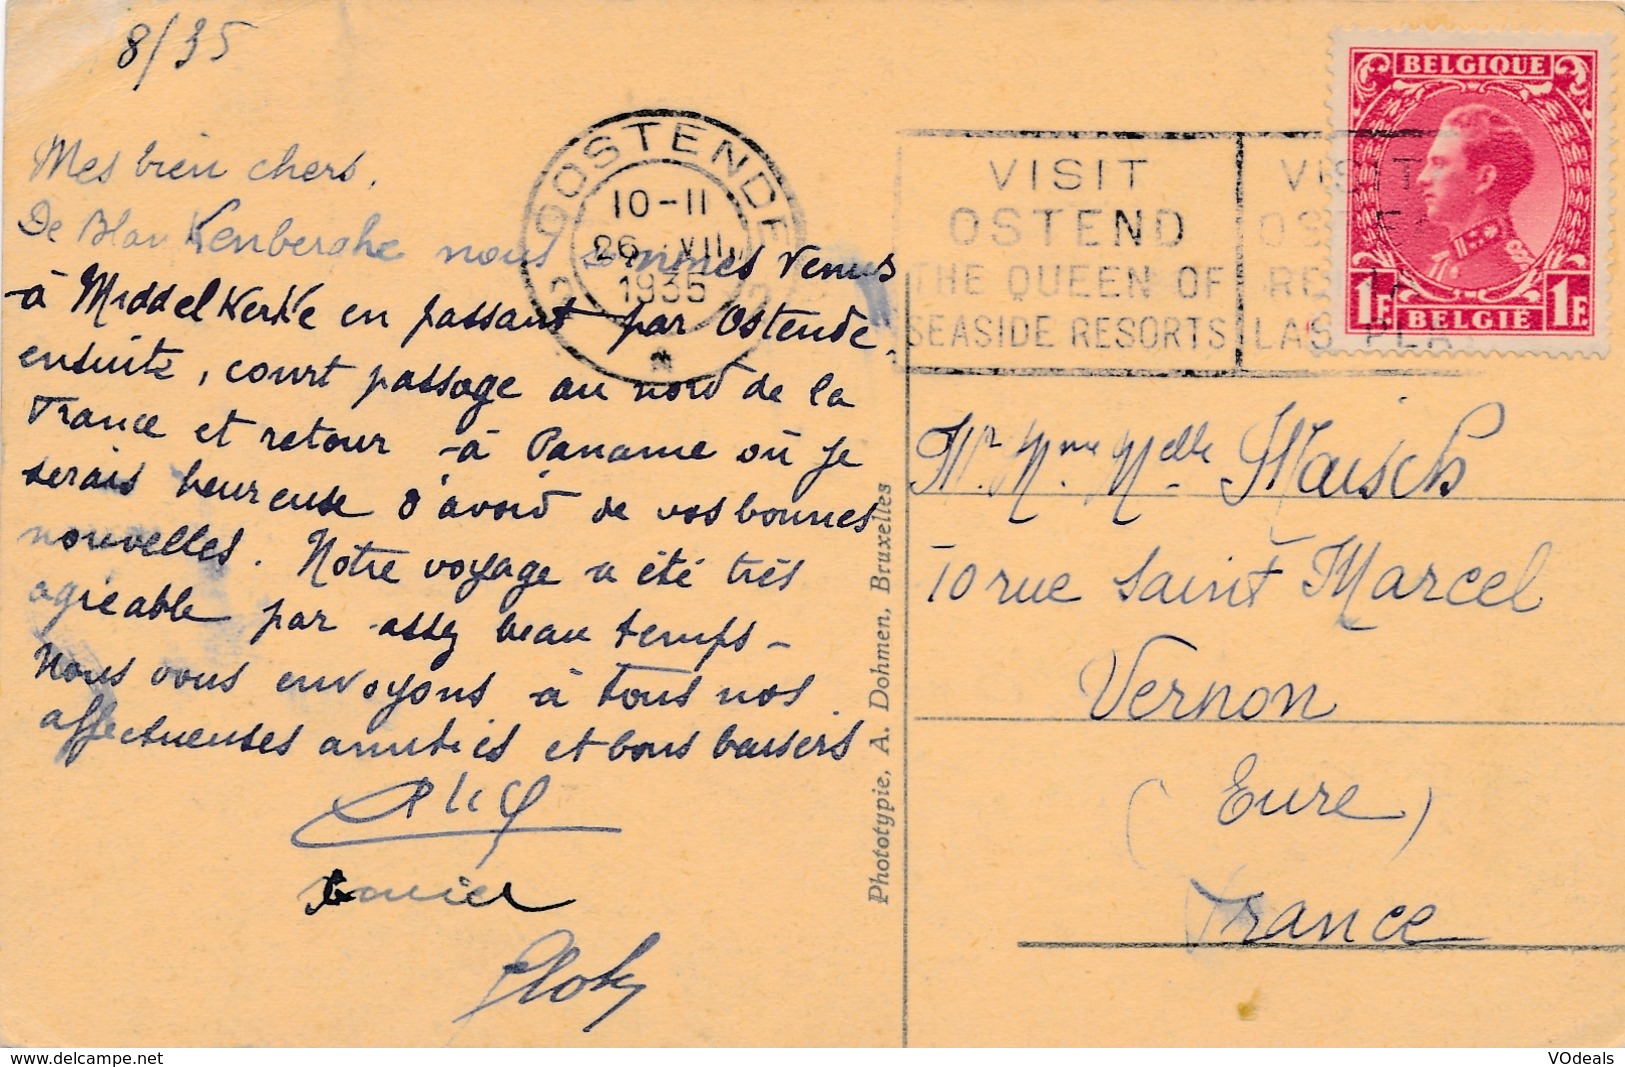 8/35
Mes bien chers,
De Blankenberghe nous sommes venus
à Middelkerke en passant par Ostende,
ensuite, court passage au nord de la
France et retour à Paname où je
serais heureuse d'avoir de vos bonnes
nouvelles. Notre voyage a été très
agréable par assez beau temps -
Nous vous envoyons à tous nos
affectueuses amitiés et bons baisers
OOSTENDE
10-11
26 VII
1935
VISIT
OSTEND
THE QUEEN OF
SEASIDE RESORTS
VISIT
OSTE
RE
LAS PLA
BELGIQUE
1F 1F
BELGIË
Phototypie, A. Dohmen, Bruxelles
Mr. Mme Melle
10 rue Saint Marcel
Vernon
(Eure)
France
delcampe.net
VOdeals